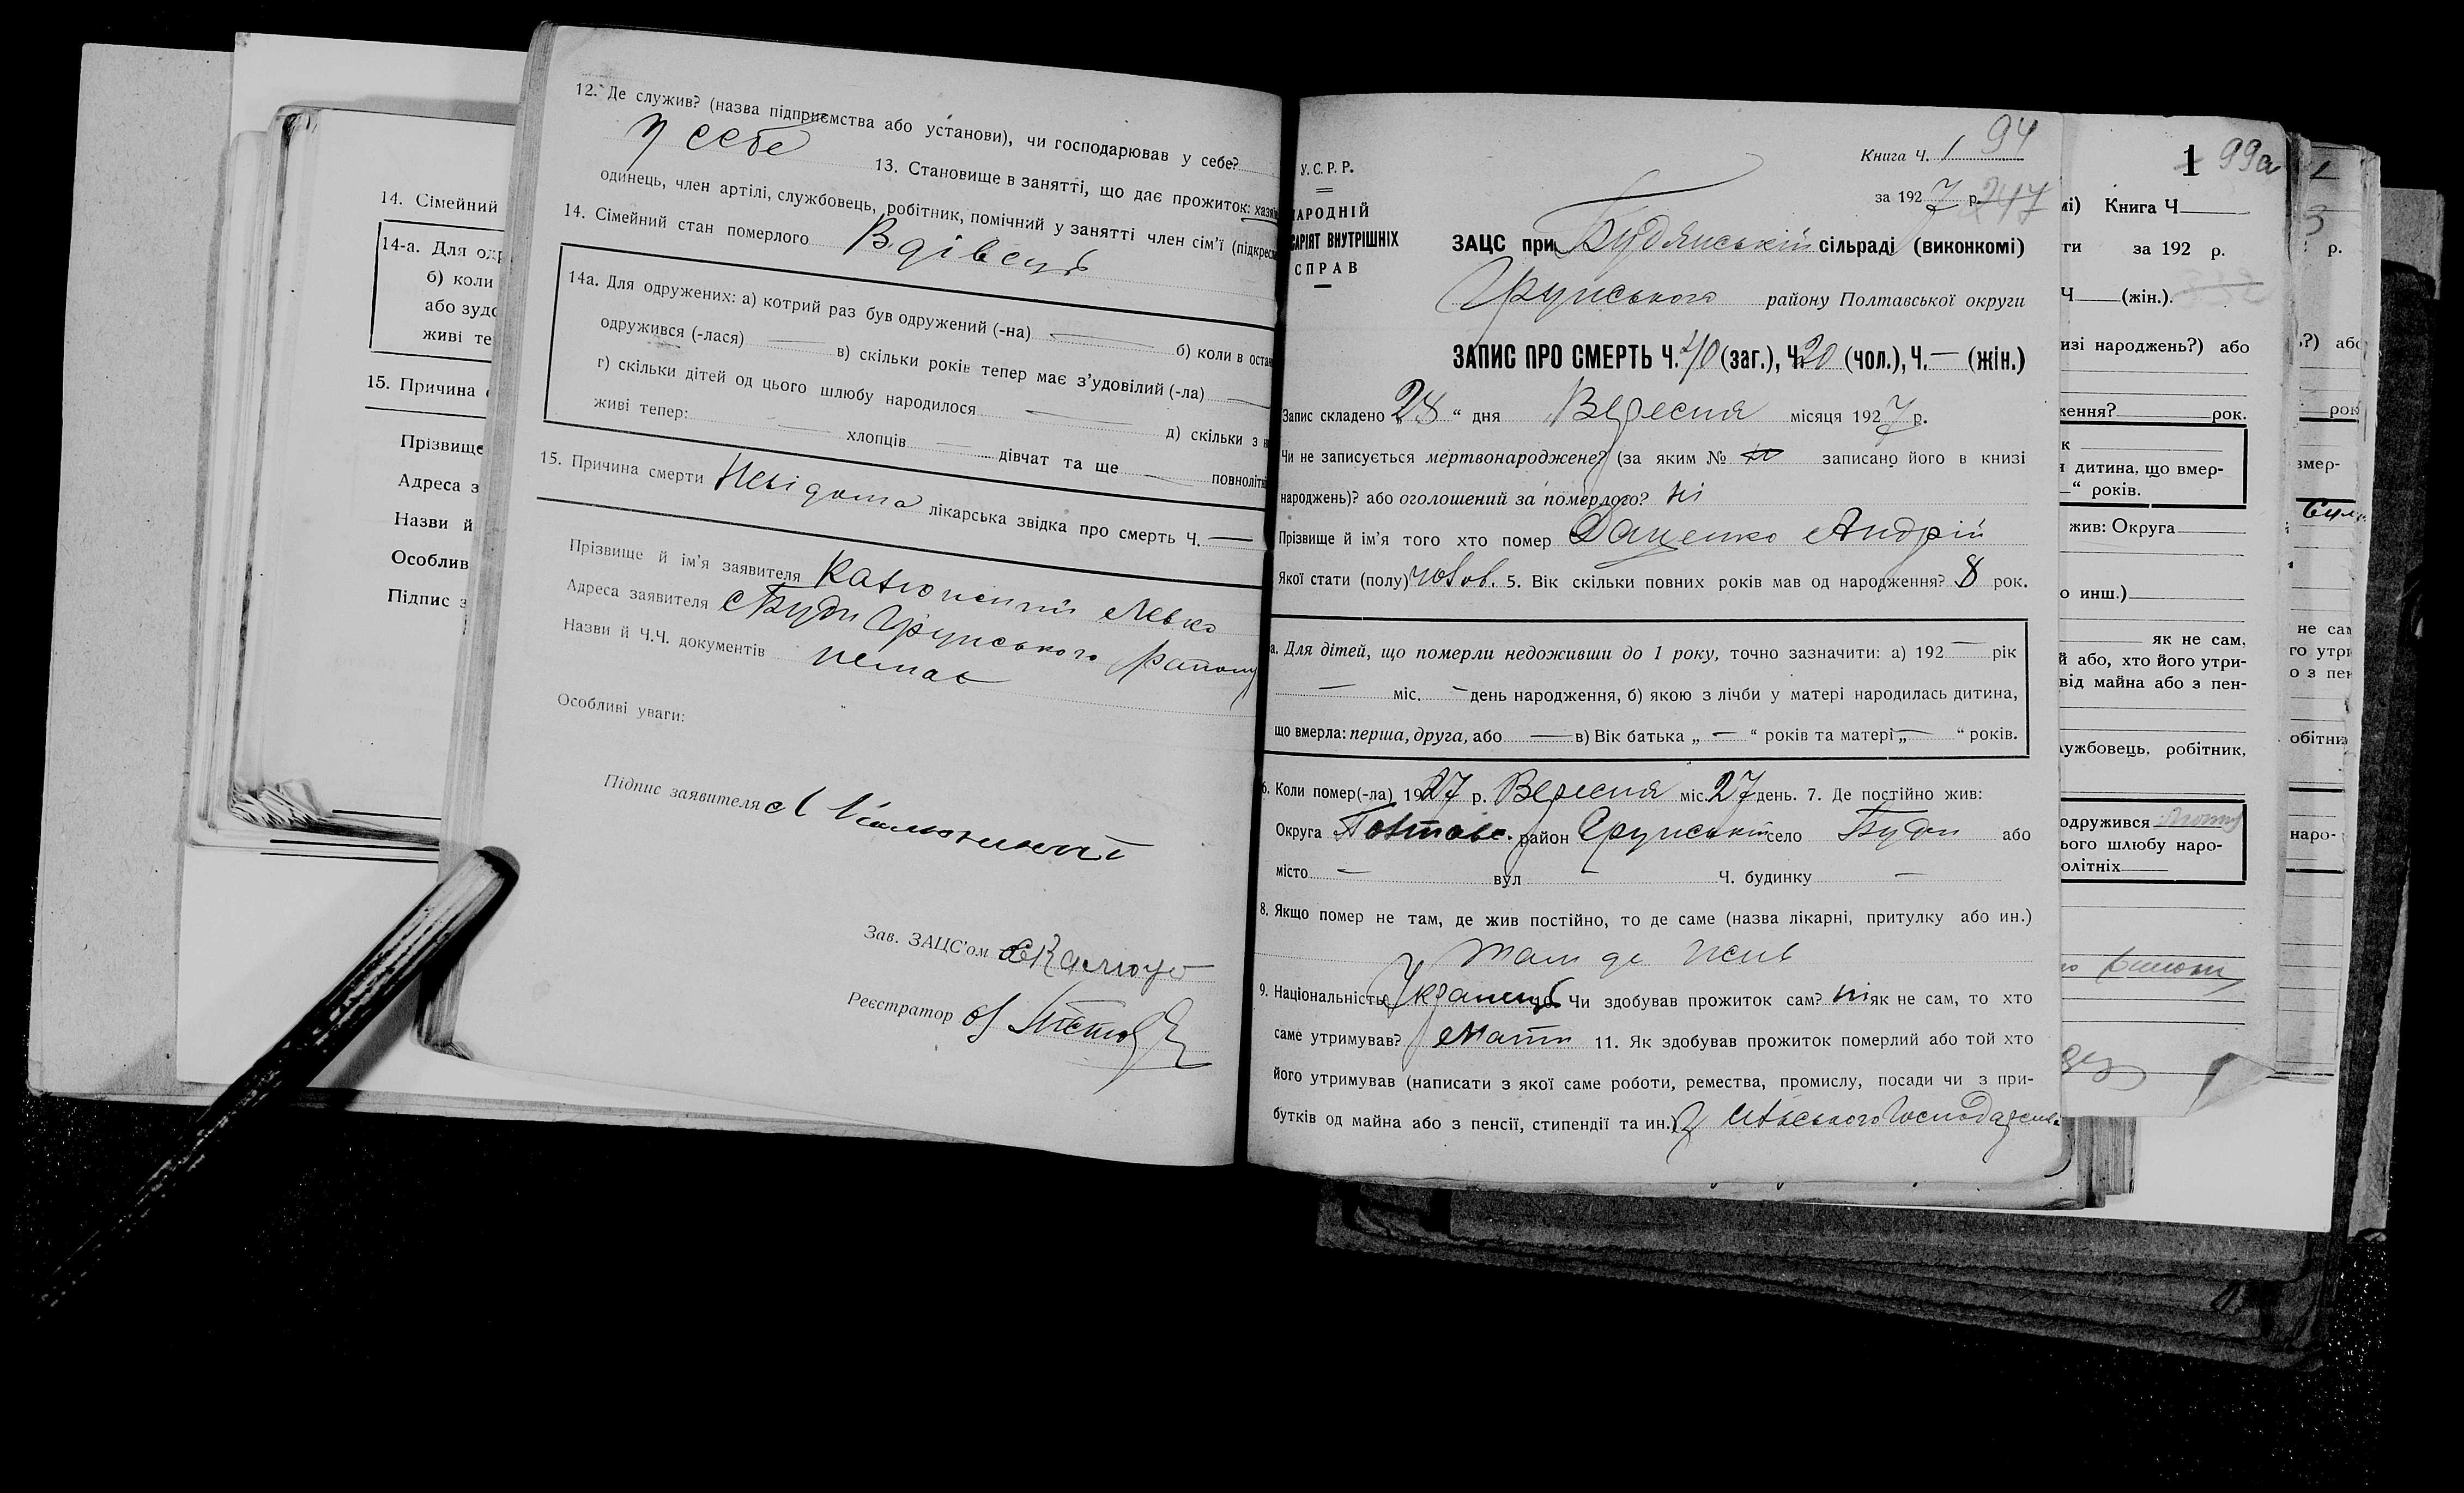 14. Сімейний
14-а. Для
б) коли
або
живі те
15. Причина
Прізвище
Адреса з
Назви й
Особлив
Підпис з
12. Де служив? (назва підприємства або установи), чи господарював у себе?
у себе 13. Становище в занятті, що дає прожиток:
одинець, член артілі, службовець, робітник, помічний у занятті член сім'ї
14. Сімейний стан померлого Вдівець
14а. Для одружених: а) котрий раз був одружений (-на) — б) коли в
одружився (-лася) — в) скільки років тепер має з'удовілий (-ла) —
г) скільки дітей од цього шлюбу народилося — д) скільки з
живі тепер: — хлопців — дівчат та ще — повноліт
15. Причина смерти Невідома лікарська звідка про смерть Ч. —
Прізвище й ім'я заявителя Калюжний Левко
Адреса заявителя с Буди Грунського району
Назви й Ч.Ч. документів немає
Особливі уваги:
Підпис заявителя Л Калюжний
Зав. ЗАЦС'ом
Реєстратор
У.С.Р.Р.
АРОДНІЙ
САРІЯТ ВНУТРІШНІХ
СПРАВ
Книга Ч. 1 94
за 1927 р. 247
ЗАЦС при Будянській сільраді (виконкомі)
Грунського району Полтавської округи
ЗАПИС ПРО СМЕРТЬ Ч. 40 (заг.), Ч. 20 (чол.), Ч. — (жін.)
Запис складено „28“ дня Вересня місяця 1927 р.
Чи не записується мертвонароджене? (за яким № записано його в книзі
народжень)? або оголошений за померлого? ні
Прізвище й ім'я того хто помер Даценко Андрій
Якої стати (полу) чолов. 5. Вік скільки повних років мав од народження? 8 рок.
а. Для дітей, що померли недоживши до 1 року, точно зазначити: а) 192 — рік
— міс. — день народження, б) якою з лічби у матері народилась дитина,
що вмерла: перша, друга, або — в) Вік батька „ — “ років та матері „ — “ років.
6. Коли помер(-ла) 1927 р. Вересня міс. 27 день. 7. Де постійно жив:
Округа Полтавс. район Грунський село Буди або
місто — вул — Ч. будинку —
8. Якщо помер не там, де жив постійно, то де саме (назва лікарні, притулку або ин.)
Там де жив
9. Національність Українець Чи здобував прожиток сам? ні як не сам, то хто
саме утримував? Мати 11. Як здобував прожиток померлий або той хто
його утримував (написати з якої саме роботи, ремества, промислу, посади чи з при-
бутків од майна або з пенсії, стипендії та ин.) З сільського господарства
1 99а
мі) Книга Ч
ти за 192 р.
Ч (жін.).
изі народжень?) або
ження? рок.
к
дитина, що вмер-
“ років.
жив: Округа
о инш.)
як не сам,
й або, хто його утри-
від майна або з пен-
ужбовець, робітник,
одружився
ього шлюбу наро-
олітніх
р.
?) або
рок
вмер-
не сам
го утри
о з пен
обітник
наро-